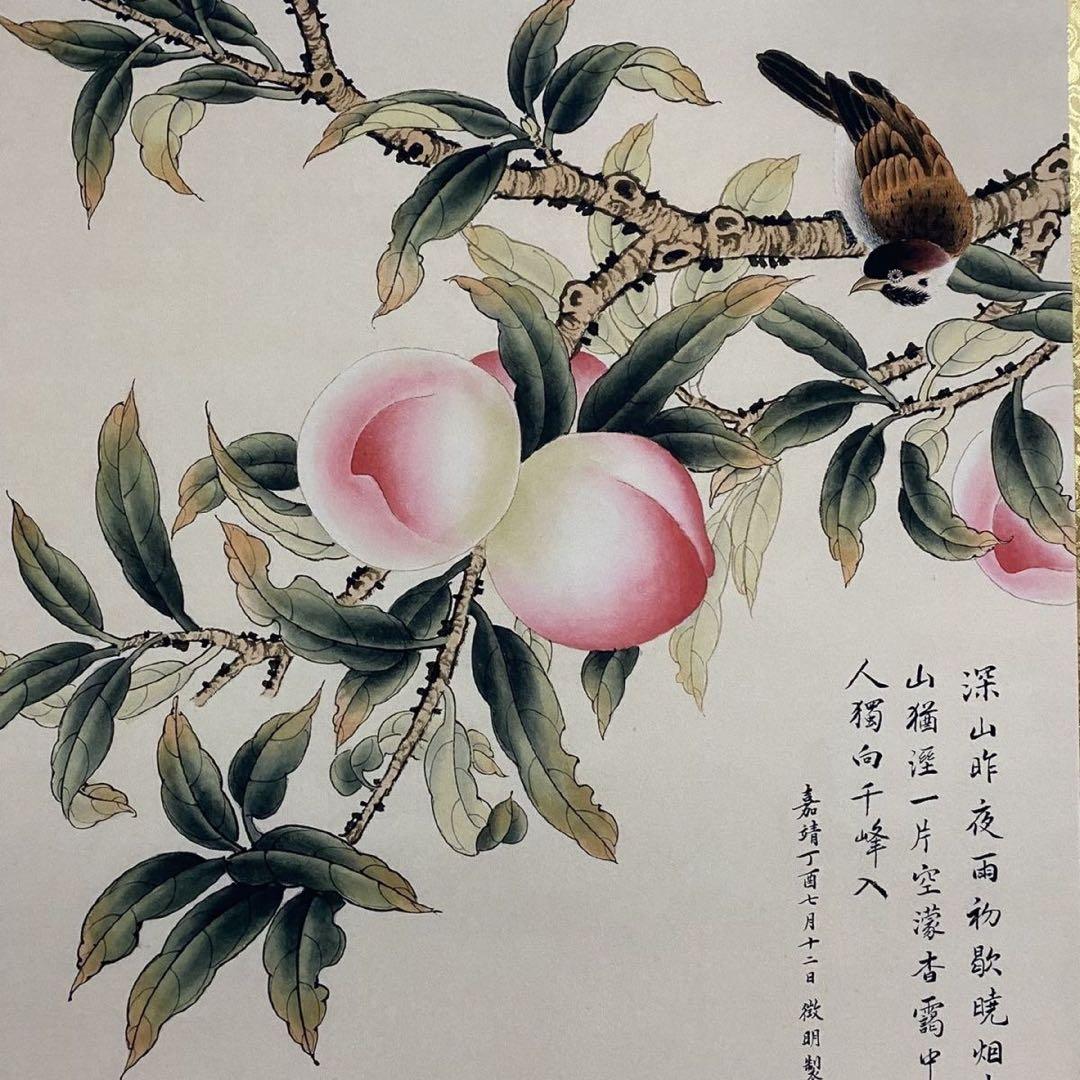 深山昨夜雨初歇曉烟
山猶溼一片空濛杳靄中
人獨向千峰入
嘉靖丁酉七月十二日徵明製